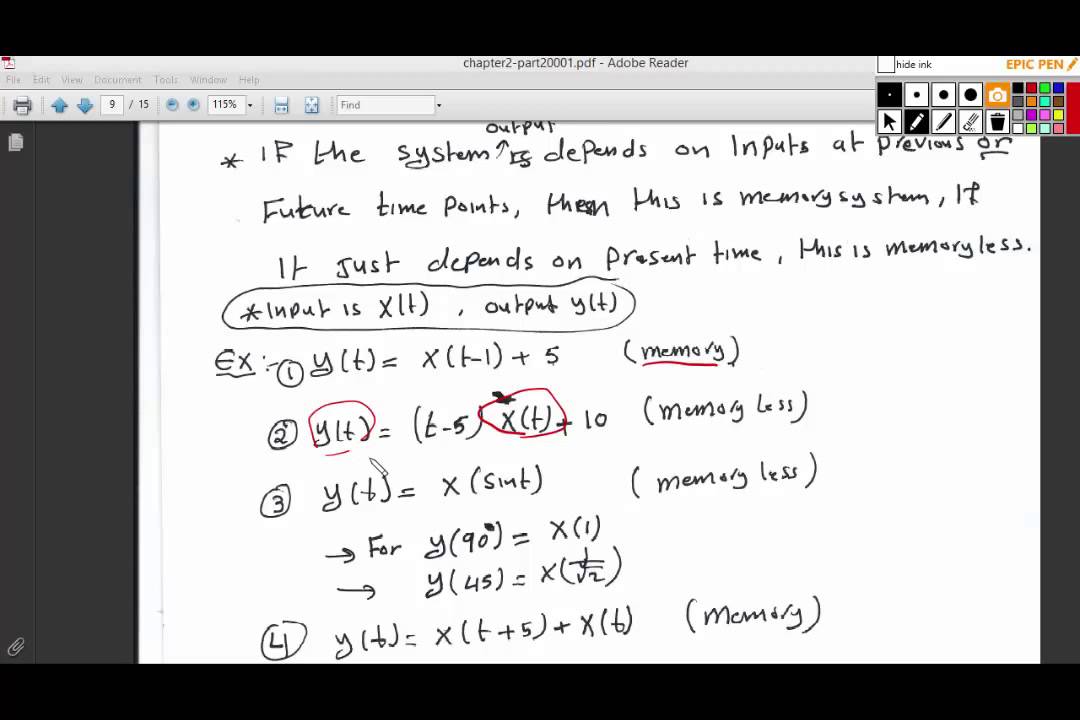 chapter2-part20001.pdf - Adobe Reader
hide ink
EPIC PEN
File Edit View Document Tools Window Help
9 / 15 115% Find
output
* IF the system is depends on Inputs at previous or
Future time points, then this is memory system, If
It Just depends on present time, this is memoryless.
*Input is X(t) , output y(t)
EX:- ① y(t) = X(t-1) + 5 (memory)
② y(t) = (t-5) X(t) + 10 (memory less)
③ y(t) = X(sint) (memory less)
→ For y(90°) = X(1)
→ y(45) = X(1/√2)
④ y(t) = X(t+5) + X(t) (memory)